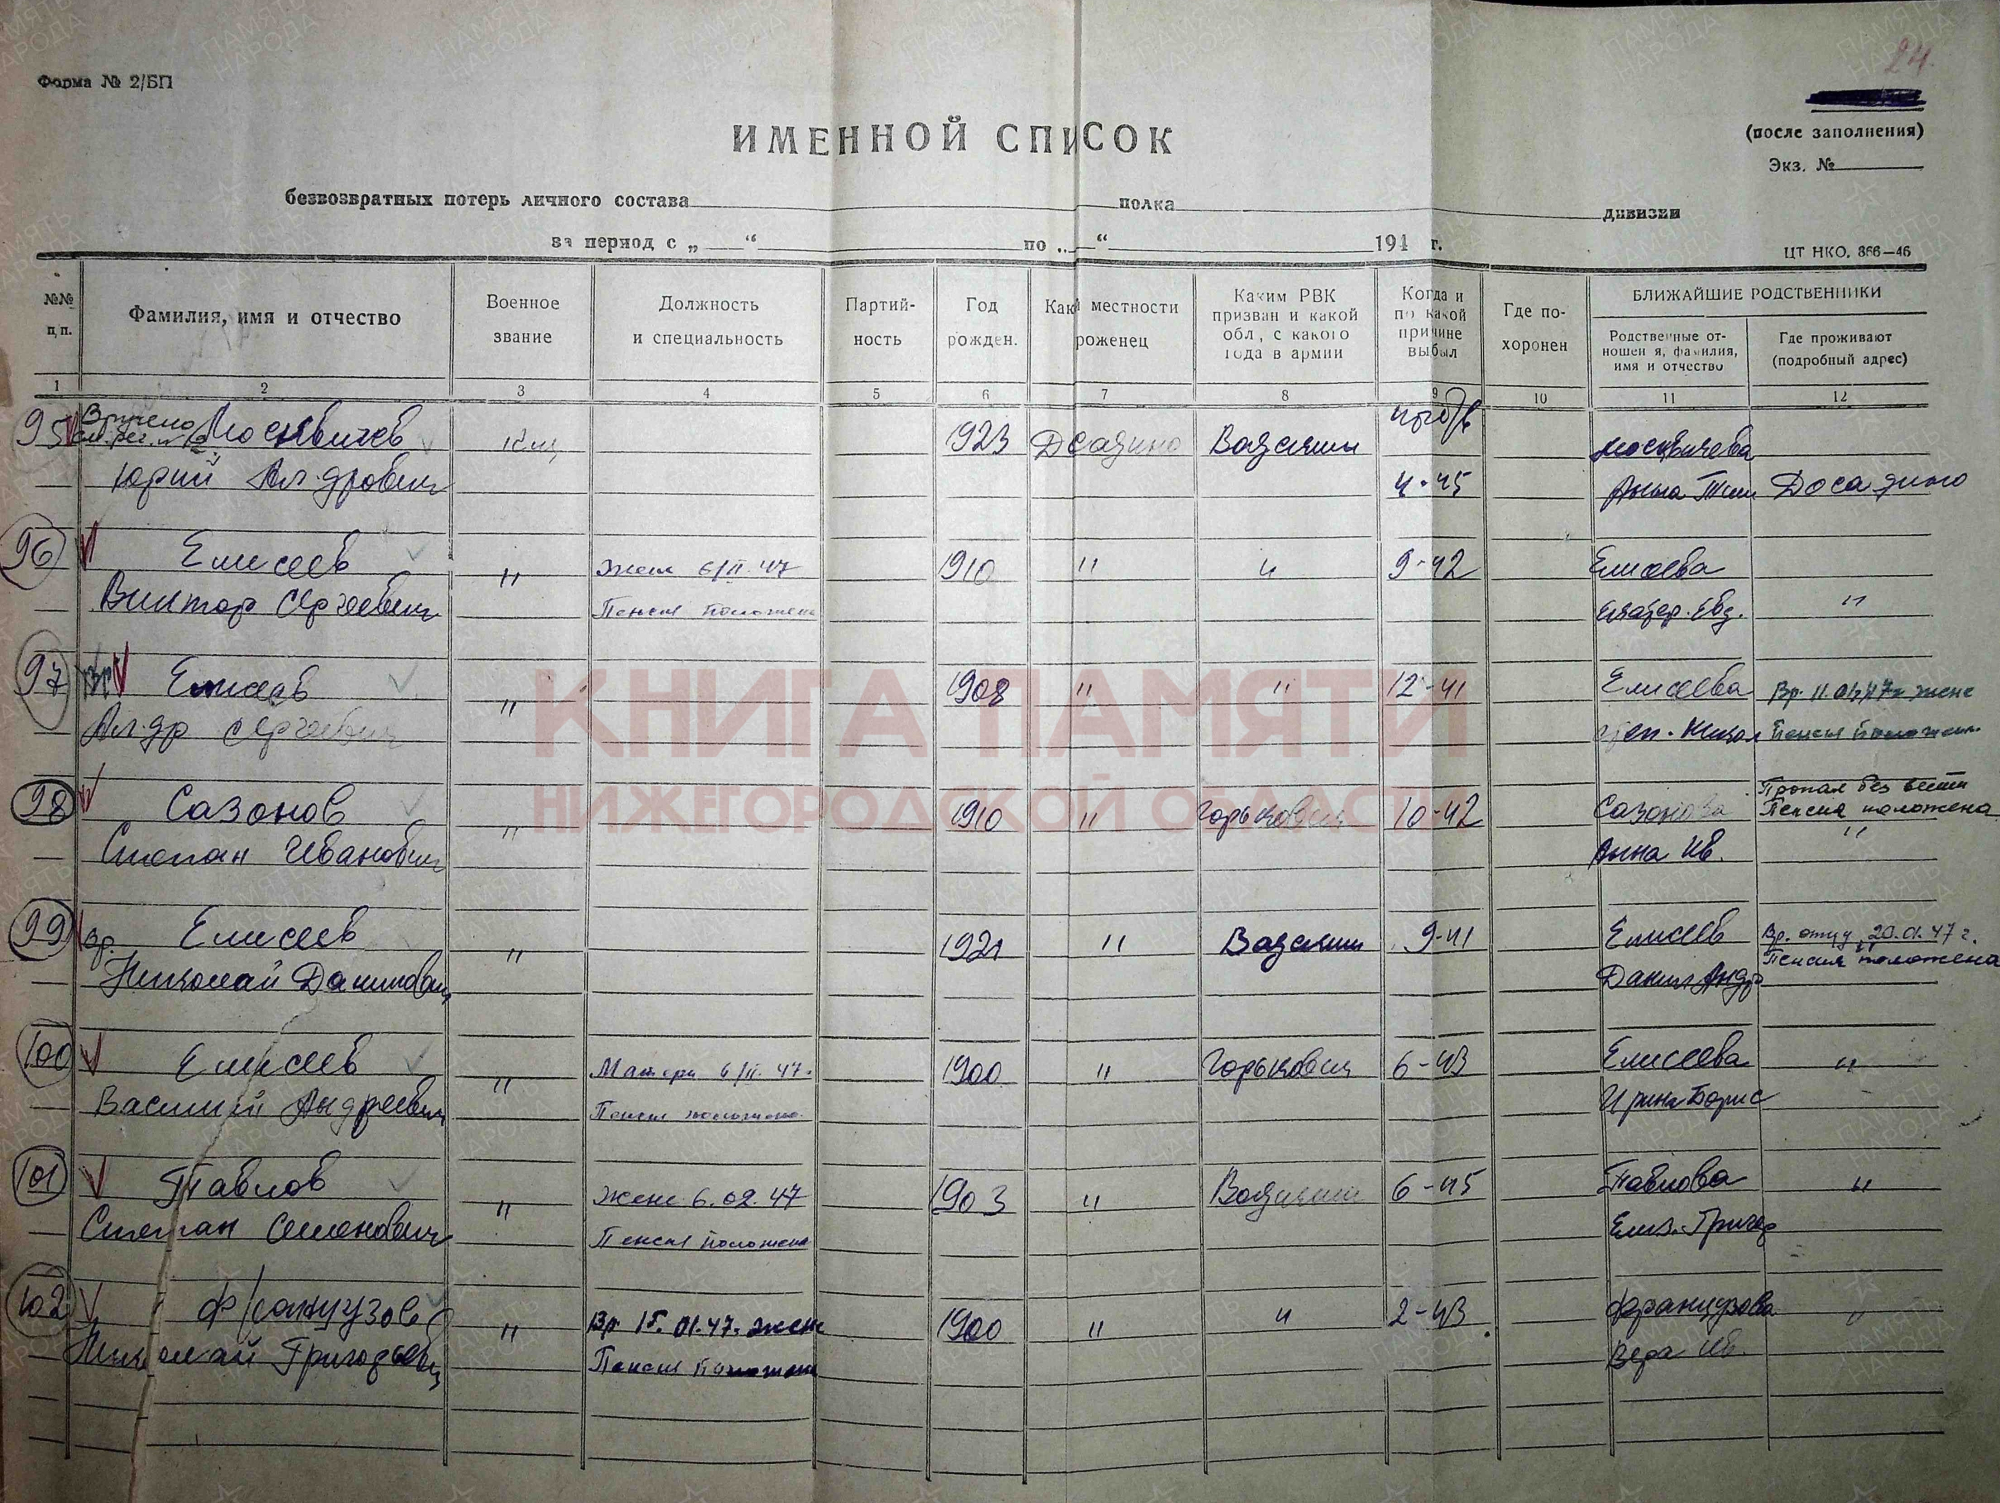 24.
Форма № 2/БП
ИМЕННОЙ СПИСОК
(после заполнения)
Экз. №
безвозвратных потерь личного состава полка дивизии
за период с „ “ по „ “ 194 г.
ЦТ НКО. 866—46
№№ п,п.
Фамилия, имя и отчество
Военное звание
Должность и специальность
Партий- ность
Год рожден.
Какой местности уроженец
Каким РВК призван и какой обл, с какого года в армии
Когда и по какой причине выбыл
Где по- хоронен
БЛИЖАЙШИЕ РОДСТВЕННИКИ
Родственные от- ношения, фамилия, имя и отчество
Где проживают (подробный адрес)
1 2 3 4 5 6 7 8 9 10 11 12
95 Вручено Москвичев 1923 Досадино Вадский Москвичева
Юрий Ал-дрович 4-45 Анна Тим Досадино
96 Елисеев " Жене 6/II.47 1910 " " 9-42 Елисеева
Виктор Сергеевич Пенсия положена Екатер. Евд. "
97 Вр Елисеев " 1908 " " 12-41 Елисеева Вр. 11.01.47г жене
Ал-др Сергеевич Пенсия положен.
98 Сазонов " 1910 " Горьковский 10-42 Сазонова Пропал без вести
Пенсия положена
Степан Иванович Анна Ив. "
99 Вр. Елисеев " 1921 " Вадский 9-41 Елисеев Вр. отцу 20.01.47 г.
Пенсия положена
Николай Данилович Данил Андр
100 Елисеев " Матери 6/II.47. 1900 " Горьковский 6-43 Елисеева "
Василий Андреевич Пенсия положена. Ирина Борис
101 Павлов " Жене 6.02.47 1903 " Вадский 6-45 Павлова "
Степан Семенович Пенсия положена Елиз. Григор
102 Французов " Вр 15.01.47. жене 1900 " " 2-43 Французова "
Николай Григорьевич Пенсия положен Вера Ив.
КНИГА ПАМЯТИ
НИЖЕГОРОДСКОЙ ОБЛАСТИ
ПАМЯТЬ НАРОДА